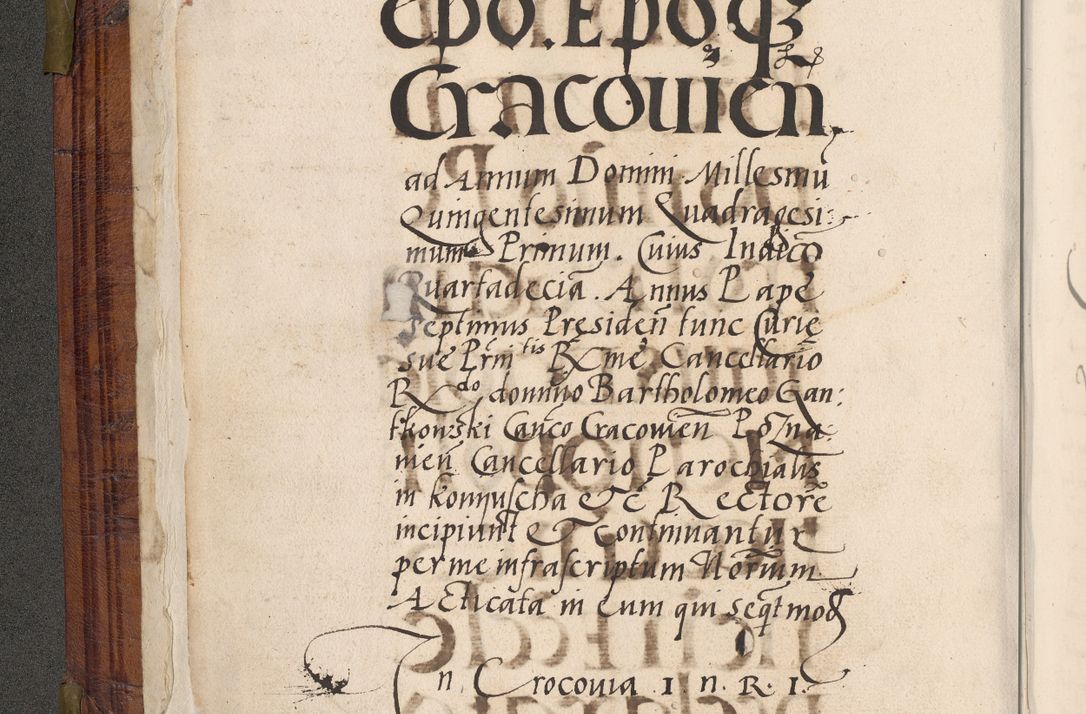 epo. Epoqꝫ
Cracouien̄.
ad Annum Domini Millesimū
Quingentesimum Quadragesi:
mum Primum. Cuius Indic̄o
Quartadecīa. Annus Pape
Septimus Presideñ tunc Curie
sue Prñitis Rx me Cancellario
Rxdo domino Bartholomeo Gan:
tkowski Canco Cracovieñ Pozna:
nieñ Cancellario Parochialis
in Koniuscha & c̄ Rectorē
incipiunt & continuantur
per me infrascriptum Norium
Acticata in eum qui seqt mod
In Crocovia I. n. R. I.